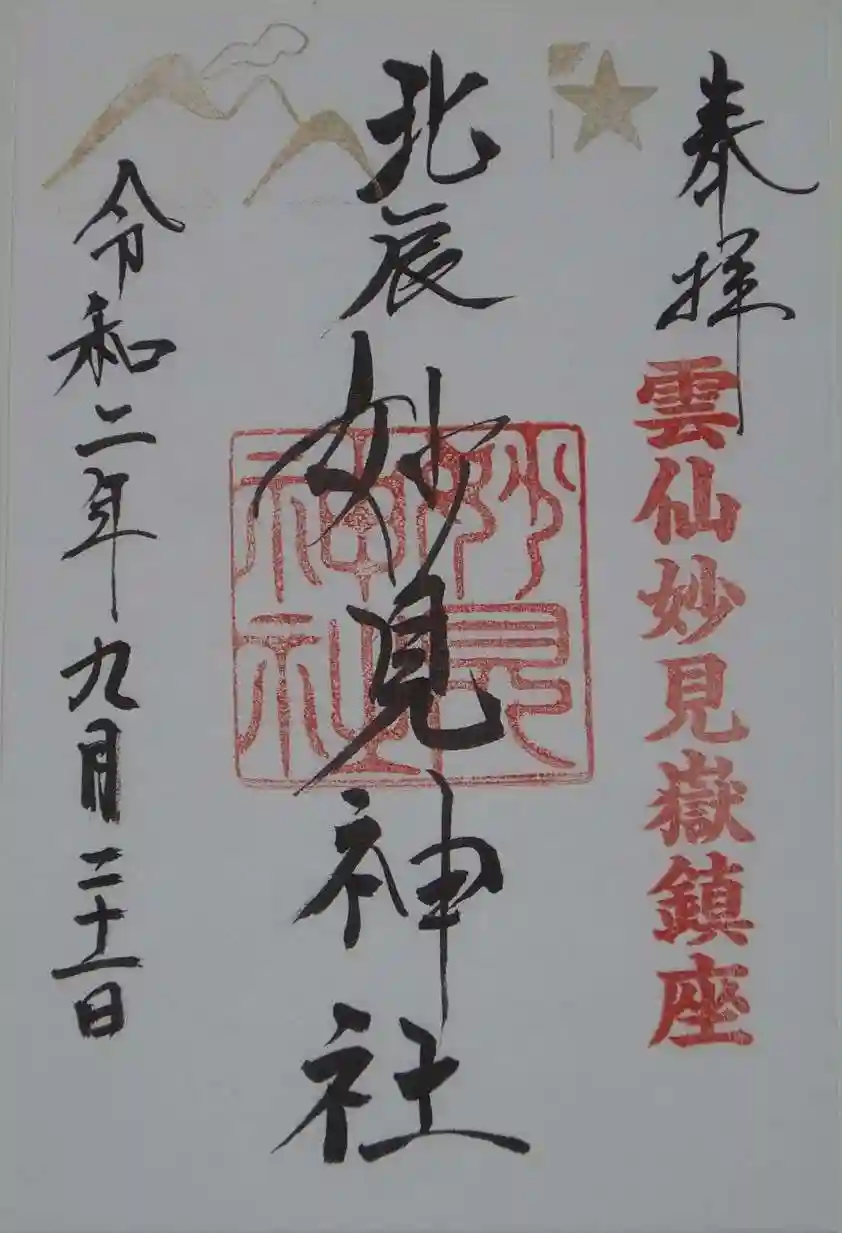 奉拝
雲仙妙見嶽鎮座
北辰妙見神社
妙見
神社
令和二年九月二十一日